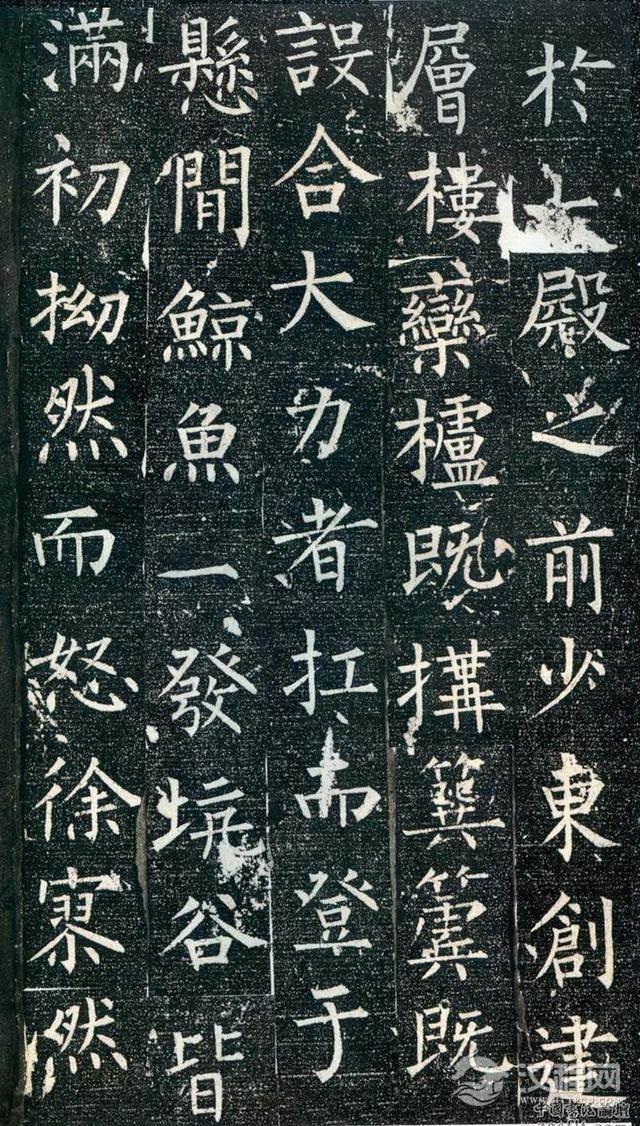 於殿之前少東創建
層樓欒櫨既搆簨簴既
設合大力者扛而登于
懸閒鯨魚一發坑谷皆
滿初拗然而怒徐寥然
汉程网